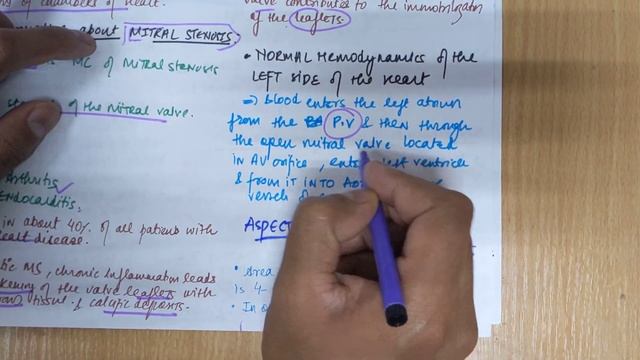 ing of chambers of heart.
about MITRAL STENOSIS
MC of Mitral stenosis
of the mitral valve.
Arthritis
Endocarditis,
in about 40% of all patients with
heart disease.
MS, chronic inflammation leads
of the valve leaflets with
tissue & calcific deposits.
valve contributed to the immobilization
of the leaflets.
• NORMAL Hemodynamics of the
LEFT SIDE of the Heart
⇒ Blood enters the left atrium
from the P.V & then through
the open mitral valve located
in AV orifice, left ventricle
& from it INTO
vessels of
ASPECT
• Area
is 4-
• In